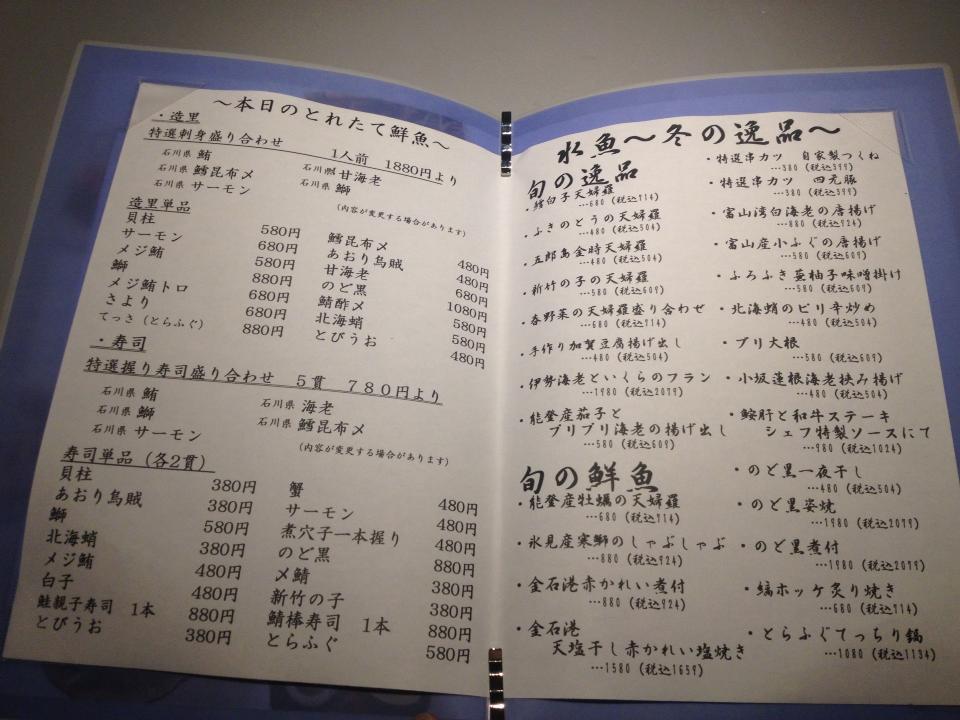 ～本日のとれたて鮮魚～
・造里
特選刺身盛り合わせ 1人前 1880円より
石川県 鮪 石川県 甘海老
石川県 鱈昆布〆 石川県 鰤
石川県 サーモン
(内容が変更する場合があります)
造里単品
貝柱 580円
サーモン 680円
メジ鮪 580円
鰤 880円
メジ鮪トロ 680円
さより 680円
てっさ (とらふぐ) 880円
鱈昆布〆 480円
あおり烏賊 480円
甘海老 680円
のど黒 1080円
鯖酢〆 580円
北海蛸 580円
とびうお 480円
・寿司
特選握り寿司盛り合わせ 5貫 780円より
石川県 鮪 石川県 海老
石川県 鰤 石川県 鱈昆布〆
石川県 サーモン
(内容が変更する場合があります)
寿司単品 (各2貫)
貝柱 380円
あおり烏賊 380円
鰤 580円
北海蛸 380円
メジ鮪 480円
白子 480円
鮭親子寿司 1本 880円
とびうお 380円
蟹 480円
サーモン 480円
煮穴子一本握り 880円
のど黒 880円
〆鯖 380円
新竹の子 380円
鯖棒寿司 1本 880円
とらふぐ 580円
氷魚～冬の逸品～
旬の逸品
・鱈白子天婦羅
…680 (税込714)
・ふきのとうの天婦羅
…480 (税込504)
・五郎島金時天婦羅
…480 (税込504)
・新竹の子の天婦羅
…580 (税込609)
・春野菜の天婦羅盛り合わせ
…680 (税込714)
・手作り加賀豆腐揚げ出し
…480 (税込504)
・伊勢海老といくらのフラン
…1980 (税込2079)
・能登産茄子と
プリプリ海老の揚げ出し
…580 (税込609)
旬の鮮魚
・能登産牡蠣の天婦羅
…680 (税込714)
・氷見産寒鰤のしゃぶしゃぶ
…880 (税込924)
・金石港赤かれい煮付
…880 (税込924)
・金石港
天塩干し赤かれい塩焼き
…1580 (税込1659)
・特選串カツ 自家製つくね
…380 (税込399)
・特選串カツ 四元豚
…380 (税込399)
・富山湾白海老の唐揚げ
…880 (税込924)
・富山産小ふぐの唐揚げ
…580 (税込609)
・ふろふき蕪柚子味噌掛け
…580 (税込609)
・北海蛸のピリ辛炒め
…480 (税込504)
・ブリ大根
…580 (税込609)
・小坂蓮根海老挟み揚げ
…480 (税込504)
・鮟肝と和牛ステーキ
シェフ特製ソースにて
…980 (税込1024)
・のど黒一夜干し
…480 (税込504)
・のど黒姿焼
…1980 (税込2079)
・のど黒煮付
…1980 (税込2079)
・縞ホッケ炙り焼き
…680 (税込714)
・とらふぐてっちり鍋
…1080 (税込1134)